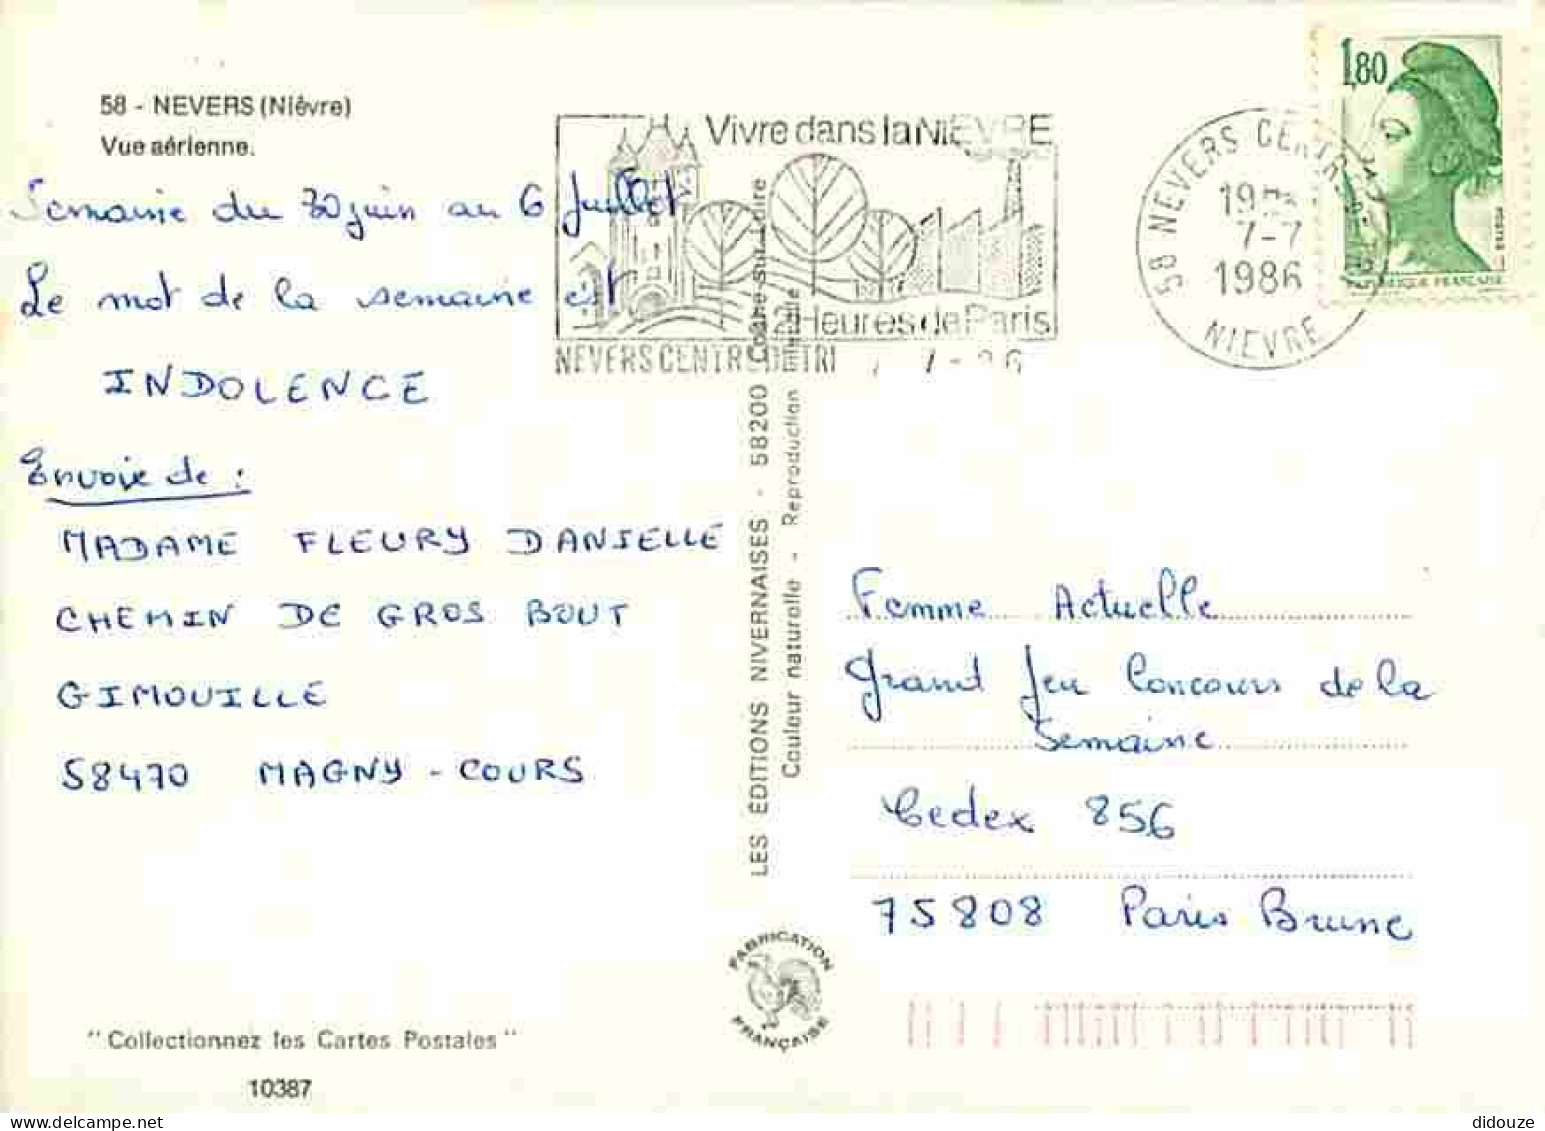 58 - NEVERS (Nièvre)
Vue aérienne.
Semaine du 30 juin au 6 Juillet
Le mot de la semaine est
INDOLENCE
Envoie de :
MADAME FLEURY DANIELLE
CHEMIN DE GROS BOUT
GIMOUILLE
58470 MAGNY - COURS
"Collectionnez les Cartes Postales"
10387
Vivre dans la NIEVRE
2 Heures de Paris
NEVERS CENTRE DE TRI 7-7-86
LES ÉDITIONS NIVERNAISES - 58200 Cosne-sur-Loire
Couleur naturelle - Reproduction interdite
FABRICATION
FRANÇAISE
58 NEVERS CENTRE DE TRI
7-7
1986
NIEVRE
1,80
REPUBLIQUE FRANÇAISE
Femme Actuelle
Grand Jeu Concours de la
Semaine
Cedex 856
75808 Paris Brune
didouze